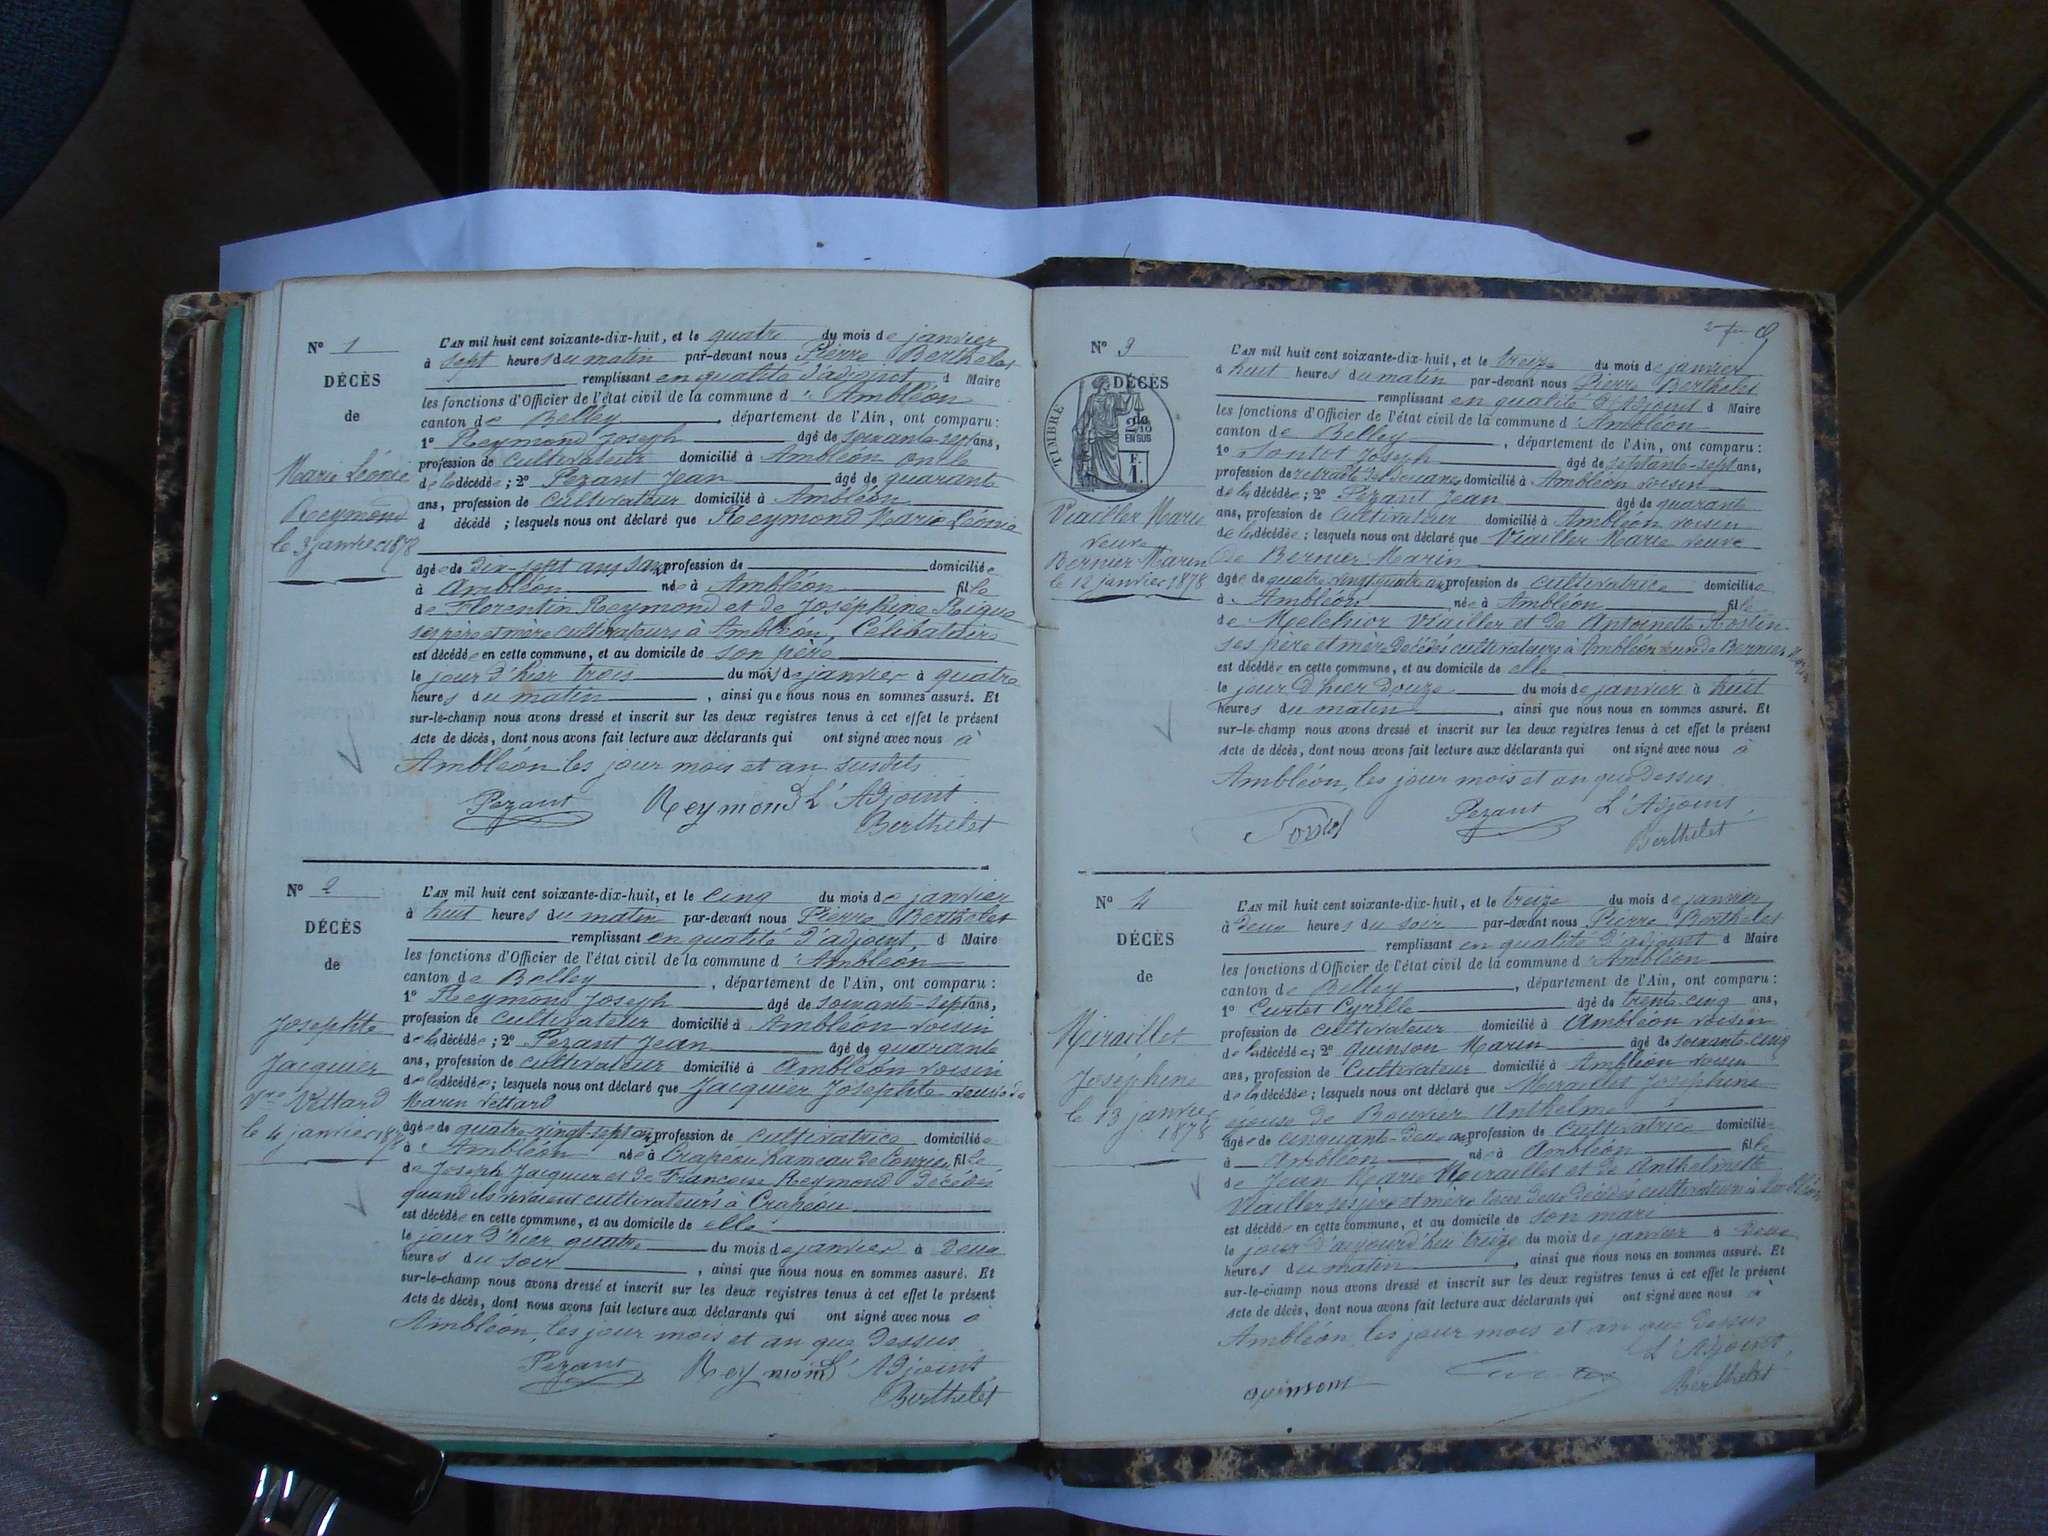 N° 1
DÉCÈS
de
Marie Léonie
Reymond
le 3 janvier 1878
L'AN mil huit cent soixante-dix-huit, et le quatre du mois de janvier
à sept heures du matin par-devant nous Pierre Berthelet
remplissant en qualité d'adjoint d Maire
les fonctions d'Officier de l'état civil de la commune d'Ambléon
canton de Belley, département de l'Ain, ont comparu:
1° Reymond Joseph âgé de soixante-sept ans,
profession de cultivateur domicilié à Ambléon oncle
de la décédée; 2° Pezant Jean âgé de quarante
ans, profession de cultivateur domicilié à Ambléon
d décédé ; lesquels nous ont déclaré que Reymond Marie Léonie
âgée de dix-sept ans sans profession de domiciliée
à Ambléon née à Ambléon fille
de Florentin Reymond et de Joséphine Rigue
ses père et mère cultivateurs à Ambléon, Célibataire
est décédée en cette commune, et au domicile de son père
le jour d'hier trois du mois de janvier à quatre
heures du matin, ainsi que nous nous en sommes assuré. Et
sur-le-champ nous avons dressé et inscrit sur les deux registres tenus à cet effet le présent
Acte de décès, dont nous avons fait lecture aux déclarants qui ont signé avec nous à
Ambléon les jour mois et an susdits
Pezant Reymond L'Adjoint
Berthelet
N° 2
DÉCÈS
de
Josephte
Jacquier
Vve Vettard
le 4 janvier 1878
L'AN mil huit cent soixante-dix-huit, et le cinq du mois de janvier
à huit heures du matin par-devant nous Pierre Berthelet
remplissant en qualité d'adjoint, d Maire
les fonctions d'Officier de l'état civil de la commune d'Ambléon
canton de Belley, département de l'Ain, ont comparu:
1° Reymond Joseph âgé de soixante-sept ans,
profession de cultivateur domicilié à Ambléon voisin
de la décédée; 2° Pezant Jean âgé de quarante
ans, profession de cultivateur domicilié à Ambléon voisin
de la décédée; lesquels nous ont déclaré que Jacquier Josephte veuve de
Marin Vettard
âgée de quatre-vingt-sept ans profession de cultivatrice domiciliée
à Ambléon née à Crapeou hameau de fille
de Joseph Jacquier et de Françoise Reymond décédés
quand ils vivaient cultivateurs à Crapéou
est décédée en cette commune, et au domicile de elle
le jour d'hier quatre du mois de janvier à deux
heures du soir, ainsi que nous nous en sommes assuré. Et
sur-le-champ nous avons dressé et inscrit sur les deux registres tenus à cet effet le présent
Acte de décès, dont nous avons fait lecture aux déclarants qui ont signé avec nous à
Ambléon, les jour mois et an que dessus
Pezant Reymond L'Adjoint
Berthelet
N° 3
DÉCÈS
de
TIMBRE
2/10
EN SUS
F.
1.
Viailler Marie
veuve
Bernier Marin
le 12 janvier 1878
L'AN mil huit cent soixante-dix-huit, et le treize du mois de janvier
à huit heures du matin par-devant nous Pierre Berthelet
remplissant en qualité d'Adjoint d Maire
les fonctions d'Officier de l'état civil de la commune d'Ambléon
canton de Belley, département de l'Ain, ont comparu:
1° Joseph âgé de septante-sept ans,
profession de retraité des Douanes domicilié à Ambléon voisin
de la décédée; 2° Pezant Jean âgé de quarante
ans, profession de cultivateur domicilié à Ambléon voisin
de la décédée; lesquels nous ont déclaré que Viailler Marie veuve
de Bernier Marin
âgée de quatre vingt quatre ans profession de cultivatrice domiciliée
à Ambléon née à Ambléon fille
de Melchior Viailler et de Antoinette Hostin
ses père et mère décédés cultivateurs à Ambléon veuve de Bernier Marin
est décédée en cette commune, et au domicile de elle
le jour d'hier douze du mois de janvier à huit
heures du matin, ainsi que nous nous en sommes assuré. Et
sur-le-champ nous avons dressé et inscrit sur les deux registres tenus à cet effet le présent
Acte de décès, dont nous avons fait lecture aux déclarants qui ont signé avec nous à
Ambléon, les jour mois et an que dessus
Pezant L'Adjoint,
Berthelet
N° 4
DÉCÈS
de
Miraillet
Joséphine
le 13 janvier
1878
L'AN mil huit cent soixante-dix-huit, et le treize du mois de janvier
à deux heures du soir par-devant nous Pierre Berthelet
remplissant en qualité d'adjoint d Maire
les fonctions d'Officier de l'état civil de la commune d'Ambléon
canton de Belley, département de l'Ain, ont comparu:
1° Curtet Cyrille âgé de trente-cinq ans,
profession de cultivateur domicilié à Ambléon voisin
de la décédée; 2° Quinson Marin âgé de soixante-cinq
ans, profession de Cultivateur domicilié à Ambléon voisin
de la décédée; lesquels nous ont déclaré que Miraillet Joséphine
épouse de Bouvier Anthelme
âgée de cinquante-deux ans profession de cultivatrice domiciliée
à Ambléon née à Ambléon fille
de Jean Marie Miraillet et de Anthelmette
Viailler ses père et mère tous deux décédés cultivateurs à Ambléon
est décédée en cette commune, et au domicile de son mari
le jour d'aujourd'hui treize du mois de janvier à deux
heures du matin, ainsi que nous nous en sommes assuré. Et
sur-le-champ nous avons dressé et inscrit sur les deux registres tenus à cet effet le présent
Acte de décès, dont nous avons fait lecture aux déclarants qui ont signé avec nous à
Ambléon les jour mois et an que dessus
L'Adjoint,
quinson Berthelet